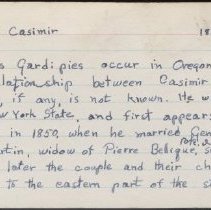 Casimir 18
s Gardipies occur in Oregon
lationship between Casimir
, is any, is not known. He w
w York State, and first appears
in 1850, when he married Gen
tin, widow of Pierre Bellique, S
later the couple and their ch
to the eastern part of the s